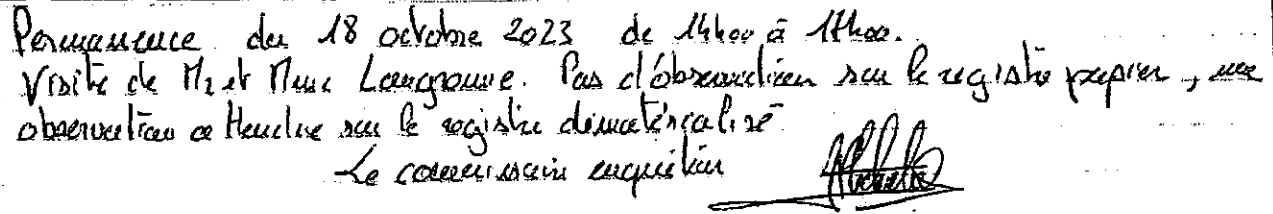 Permanence du 18 octobre 2023 de 14h00 à 17h00.
Visite de Mr et Mme Langrome. Pas d'observation sur le registre papier, une
observation attendue sur le registre dématérialisé
Le commissaire enquêteur